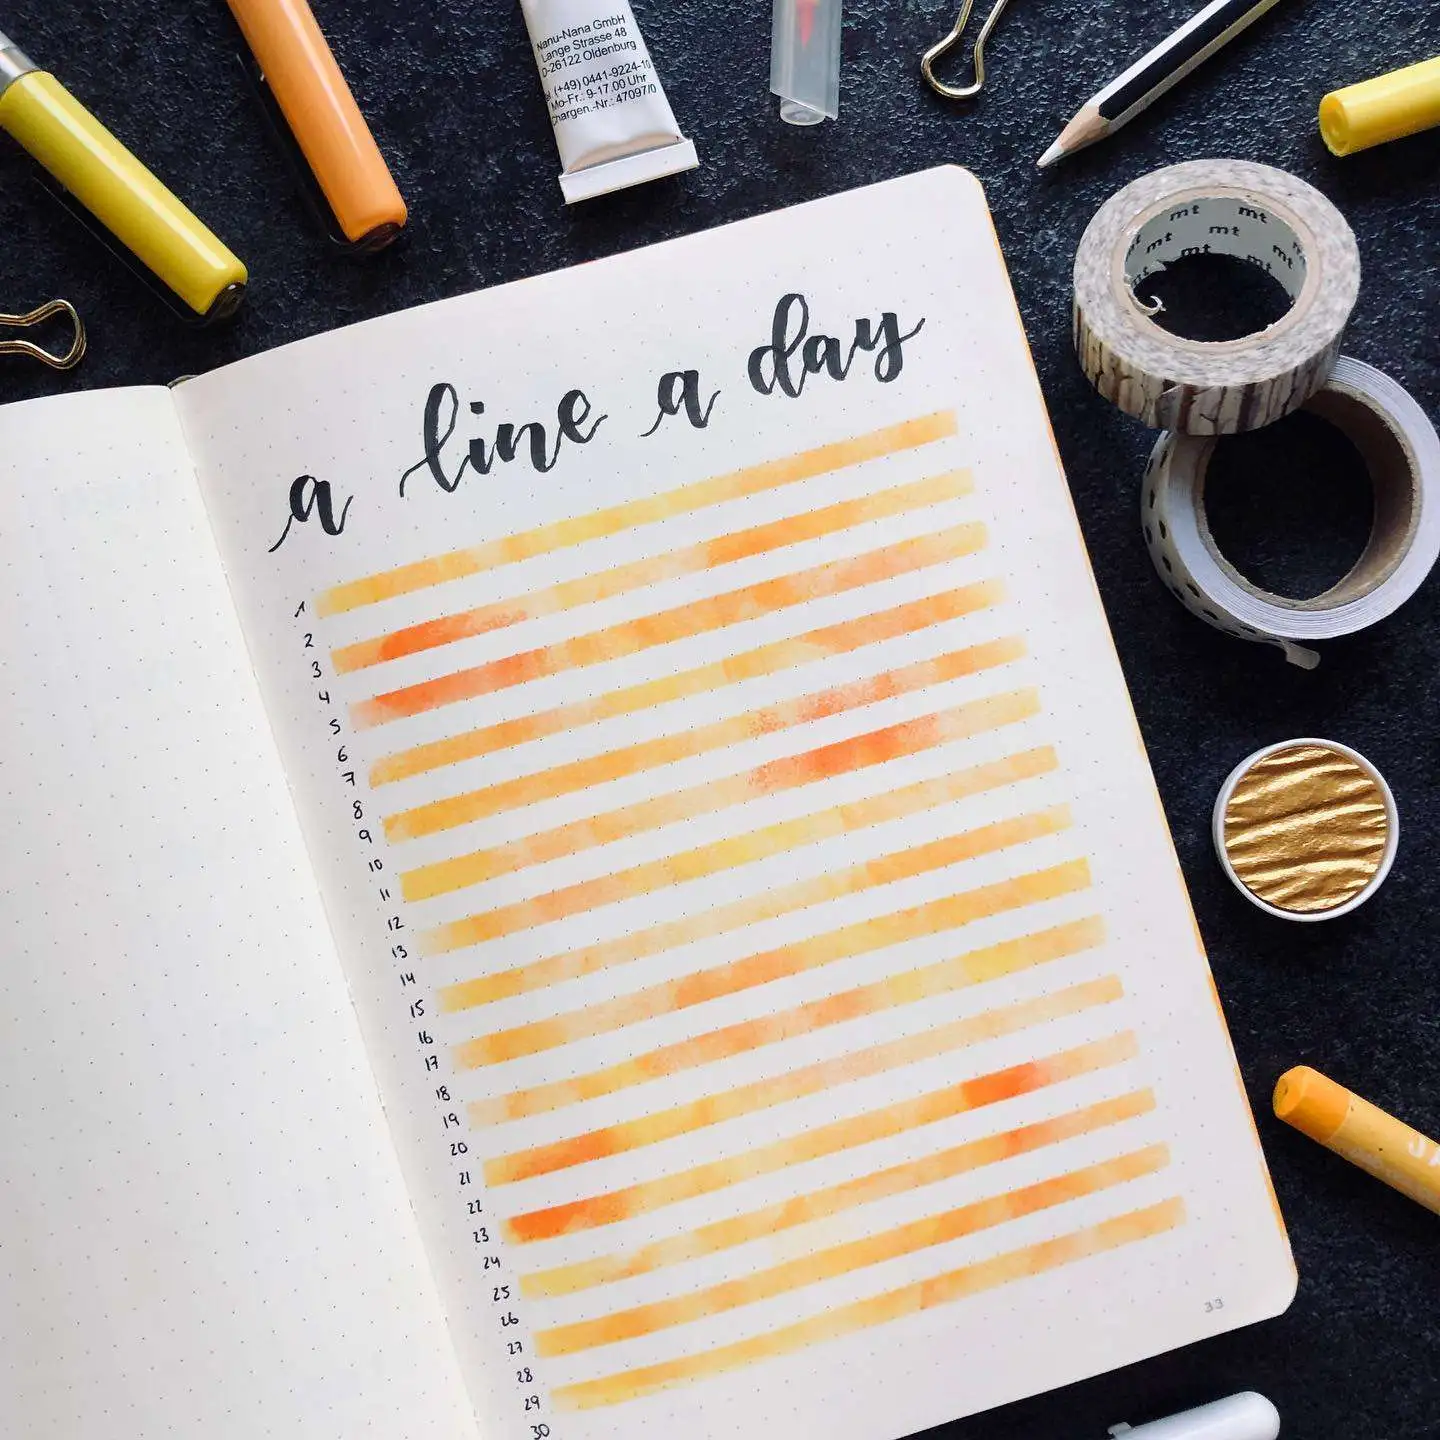 Nanu-Nana GmbH
Lange Strasse 48
D-26122 Oldenburg
(+49) 0441-9224-10
Mo-Fr.: 9-17.00 Uhr
Chargen.-Nr.: 47097/0
mt mt
mt mt mt
mt mt mt
a line a day
1
2
3
4
5
6
7
8
9
10
11
12
13
14
15
16
17
18
19
20
21
22
23
24
25
26
27
28
29
30
33